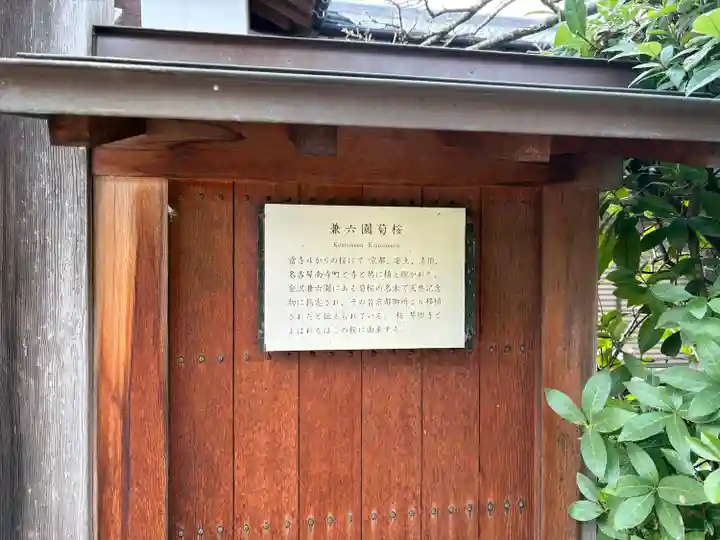 兼六園菊桜
Kenrokuen Kikuzakura
當寺ゆかりの桜にて 京都、安土、清須、
名古屋南寺町と寺と共に植え継がれた。
金沢兼六園にある菊桜の名木で天然記念
物に指定され、その昔京都御所より移植
されたと伝えられている。 桜 寺と
よばれるはこの桜に由来する。